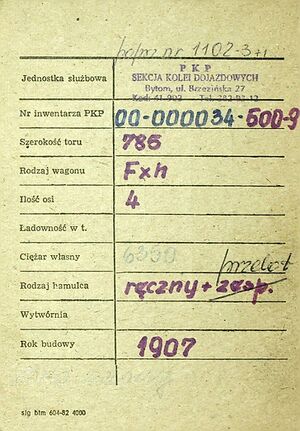 nr 1102-3
Jednostka służbowa
PKP
SEKCJA KOLEI DOJAZDOWYCH
Bytom, ul. Brzezińska 27
Kod: 41-902
Nr inwentarza PKP 00-000034-500-9
Szerokość toru 785
Rodzaj wagonu Fxh
Ilość osi 4
Ładowność w t.
Ciężar własny 6350
Rodzaj hamulca ręczny + zesp. przelot
Wytwórnia
Rok budowy 1907
sig btm 604-82 4000